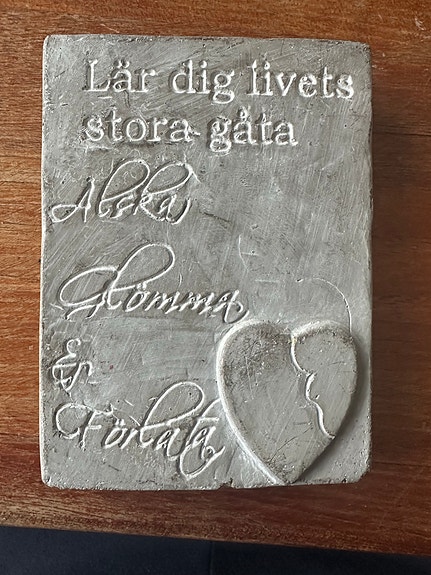 Lär dig livets
stora gåta
Älska
Glömma
&
Förlåta